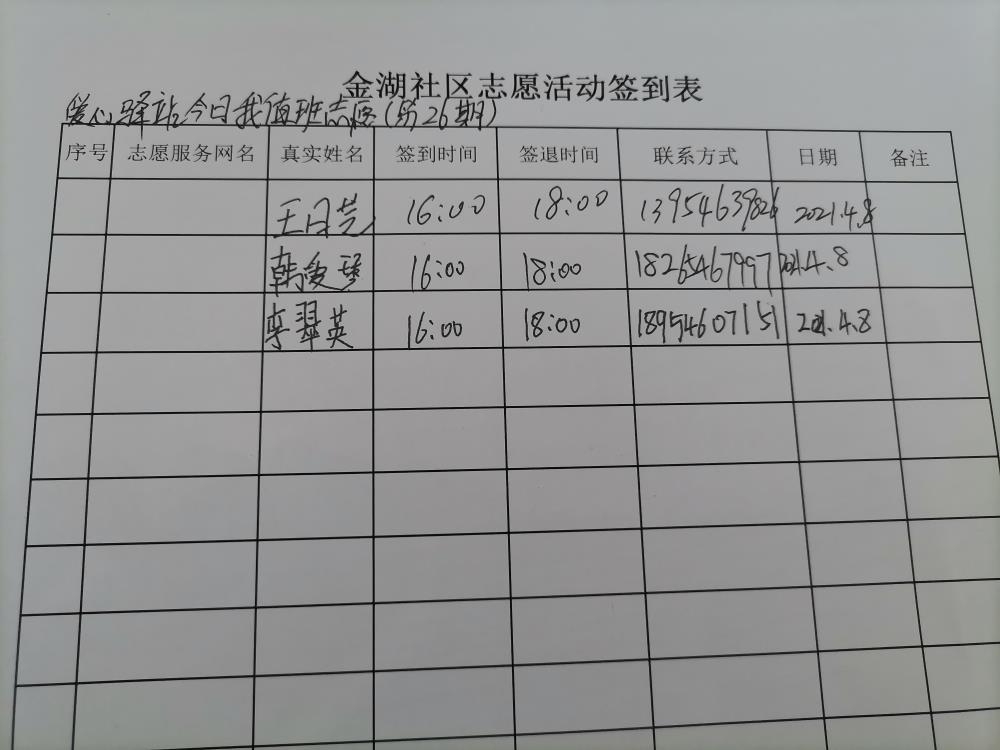 金湖社区志愿活动签到表
爱心驿站今日我值班志愿(第26期)
序号 志愿服务网名 真实姓名 签到时间 签退时间 联系方式 日期 备注
王日芸 16:00 18:00 13954639826 2021.4.8
韩爱琴 16:00 18:00 18265467997 2021.4.8
李翠英 16:00 18:00 18954607151 2021.4.8